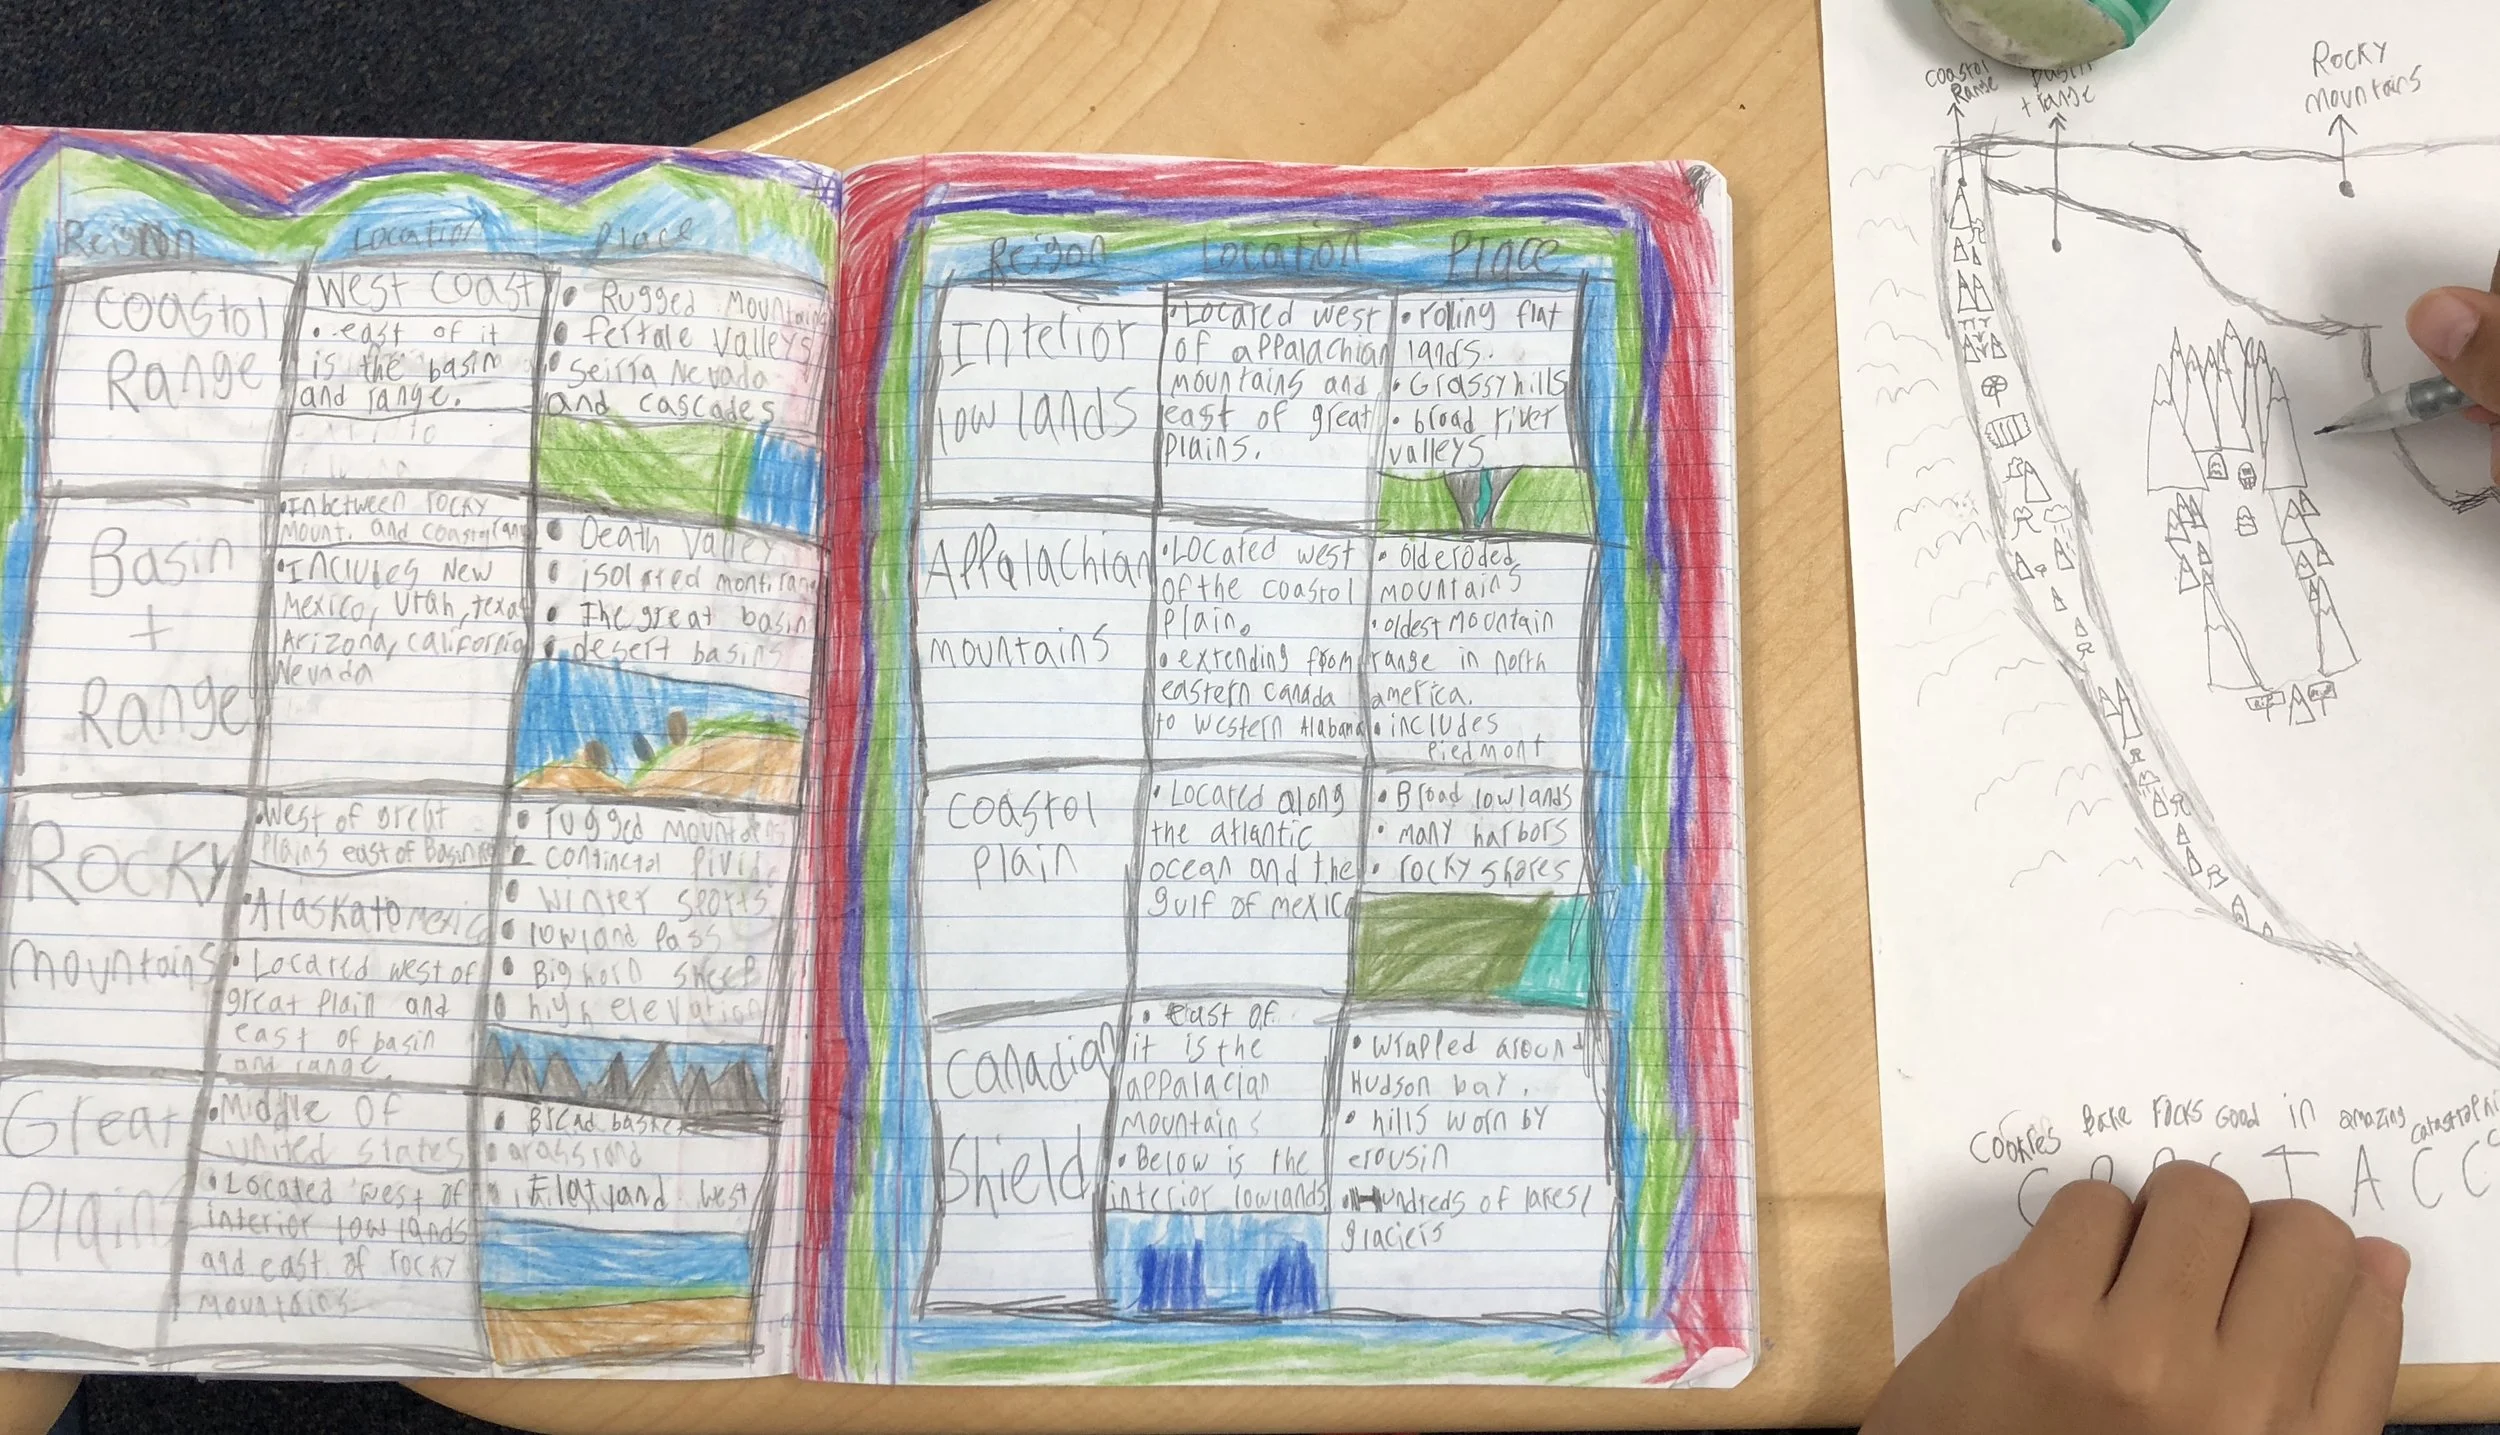 Reigon Location Place
Coastol
Range
West Coast
• east of it
is the basin
and range.
• Rugged Mountains
• fertale valleys
• Seirra Nevada
and cascades
Basin
+
Range
• Inbetween rocky
mount. and coastol rang
• Includes New
Mexico, Utah, texas
Arizona, california
Nevada
• Death Valley
• isolated mont. rang
• The great basin
• desert basins
Rocky
mountains
• West of great
Plains east of Basin
• Alaska to mexico
• Located west of
great Plain and
east of basin
and range.
• rugged mountains
• continctal Divide
• winter sports
• lowland Pass
• Big horn sheep
• high elevation
Great
Plain
• Middle of
united states
• Located west of
interior low lands
and east of rocky
mountains
• Bread basket
• grassland
• Flat land west
Reigon Location Place
Interior
low lands
• Located west
of appalachian
mountains and
east of great
Plains.
• rolling flat
lands.
• Grassy hills
• broad river
valleys
Appalachian
mountains
• Located west
of the coastol
Plain.
• extending from
eastern canada
to western Alabama
• old eroded
mountains
• oldest mountain
range in north
america.
• includes
Piedmont
coastol
Plain
• Located along
the atlantic
ocean and the
gulf of mexico
• Broad lowlands
• many harbors
• rocky shores
Canadian
Shield
• east of
it is the
appalacian
mountains
• Below is the
interior lowlands
• wrapled around
Hudson bay.
• hills worn by
erousin
• Hundreds of lakes/
glaciers
Coastol
Range
basin
+ range
Rocky
mountains
Cookies Bake Rocks Good in amazing
T A C C